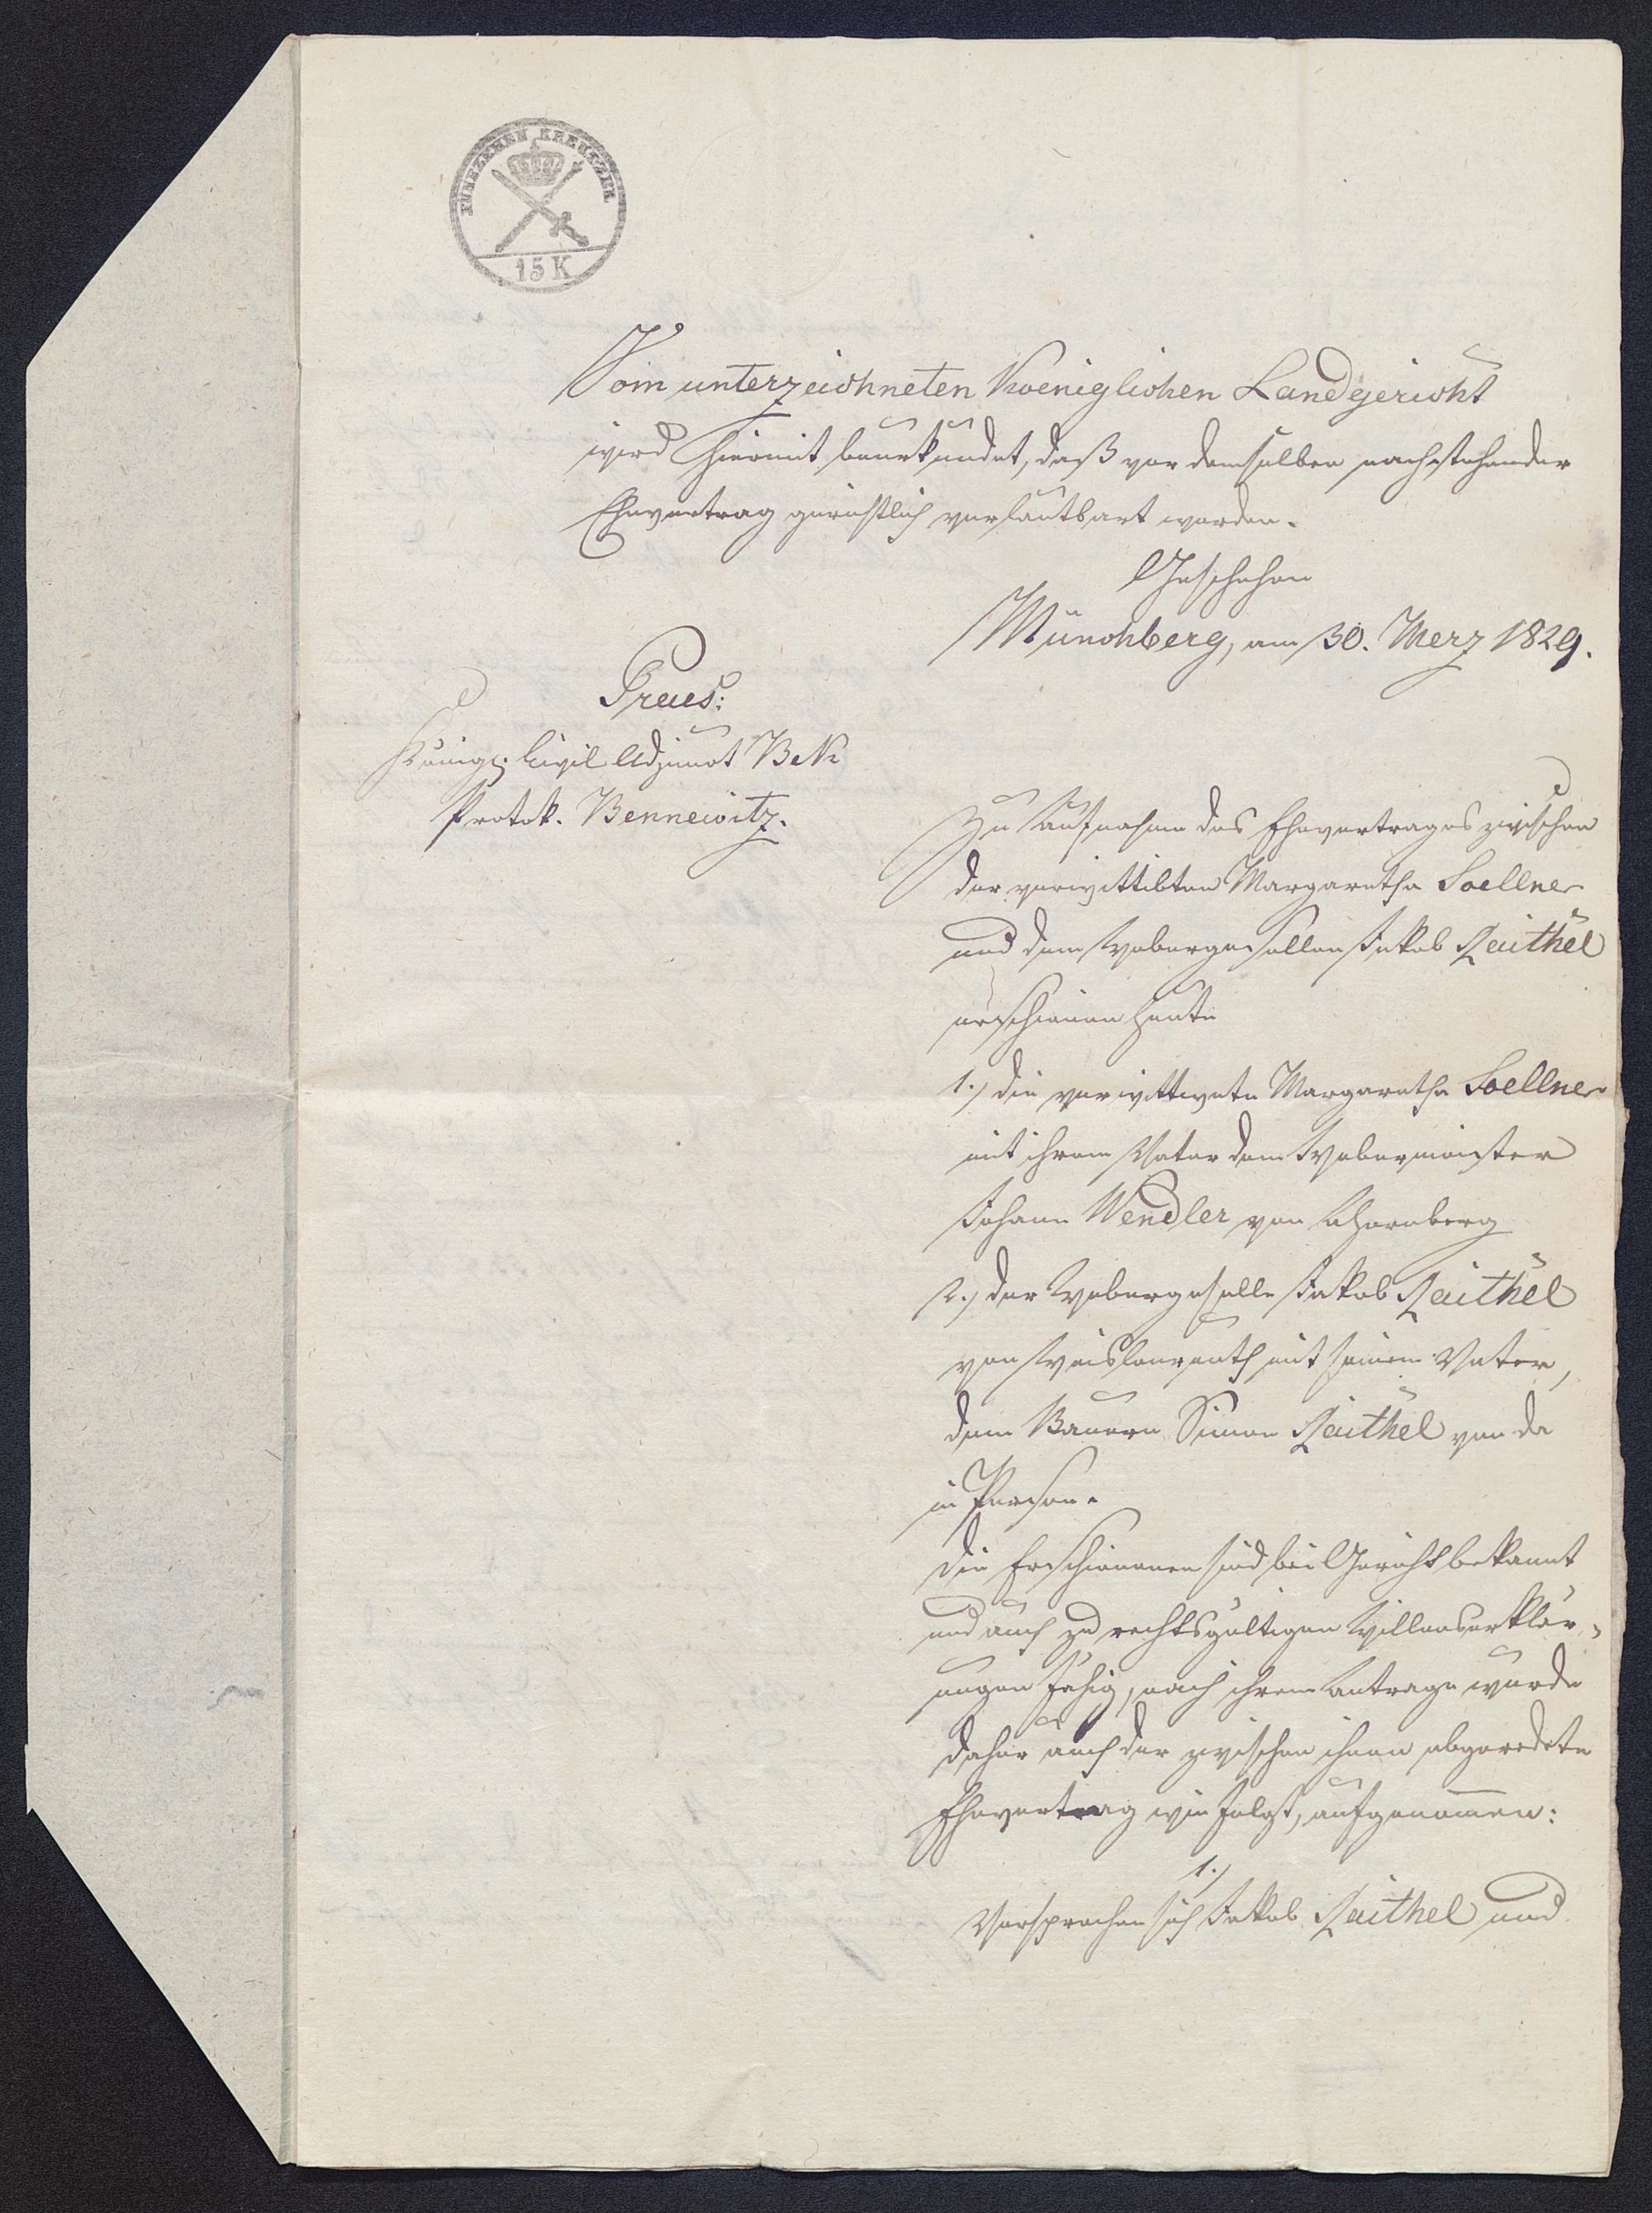 FÜNFZEHEN KREUTZER
15 K
Vom unterzeichneten Koeniglichen Landgericht
wird hiermit beurkundet, daß vor demselben nachstehender
Ehevertrag gerichtlich verlautbart worden.
Geschehen
Münchberg, am 30. Merz 1829.
Praes:
Königl. Civil Adjunct Bek
Protok. Bennewitz.
Zu Aufnahme des Ehevertrages zwischen
der verwittibten Margaretha Soellner
und dem Webergesellen Jakob Raithel
erschienen heute
1.) die verwittwete Margaretha Soellner
mit ihrem Vater dem Webermeister
Johann Wendler von Ahornberg
2.) der Webergeselle Jakob Raithel
von Weislenreuth mit seinem Vater,
dem Bauern Simon Raithel von da
in Person.
Die Erschienenen sind bei Gericht bekannt
und auch zu rechtsgültigen Willenserklär-
ungen fähig, nach ihrem Antrage wurde
daher auch der zwischen ihnen abgeredete
Ehevertrag wie folgt, aufgenommen:
1.)
Versprechen sich Jakob Raithel und